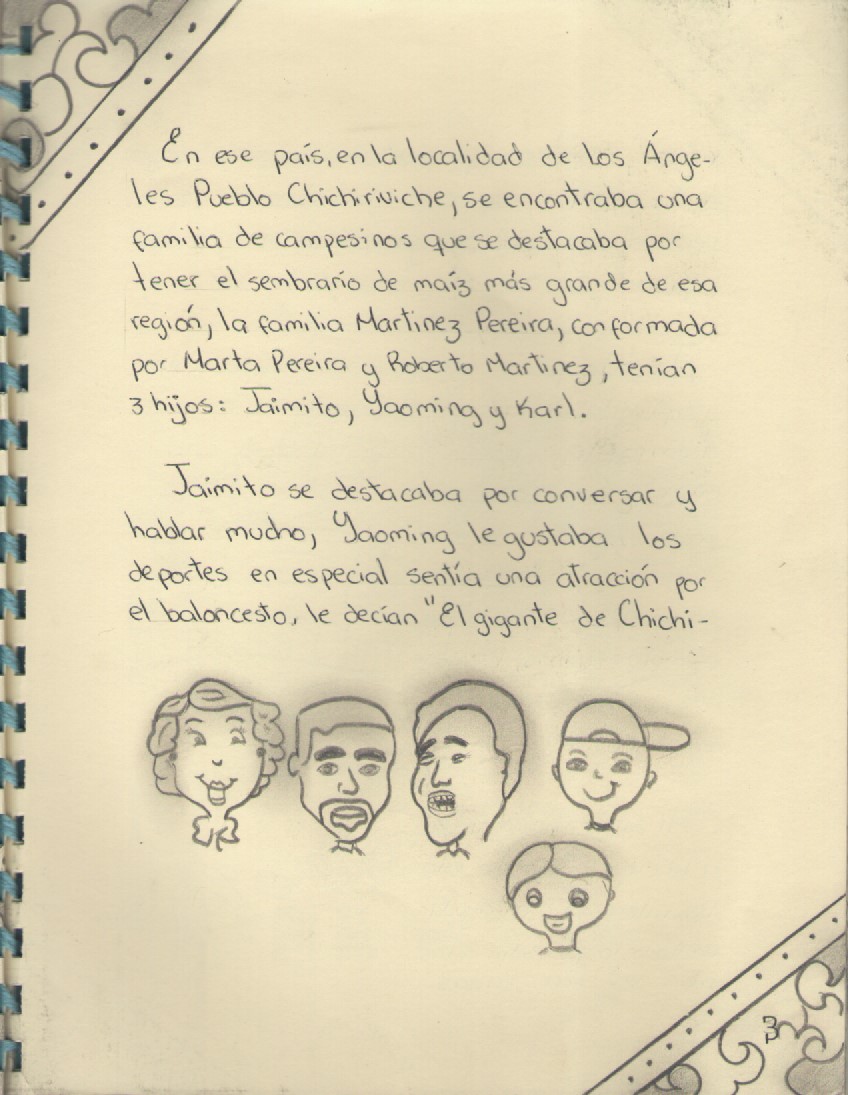 En ese país, en la localidad de los Ánge-
les Pueblo Chichiriviche, se encontraba una
familia de campesinos que se destacaba por
tener el sembrario de maíz más grande de esa
región, la familia Martinez Pereira, conformada
por Marta Pereira y Roberto Martinez, tenían
3 hijos: Jaimito, Yaoming y Karl.
Jaimito se destacaba por conversar y
hablar mucho, Yaoming le gustaba los
deportes en especial sentía una atracción por
el baloncesto, le decían "El gigante de Chichi-
3